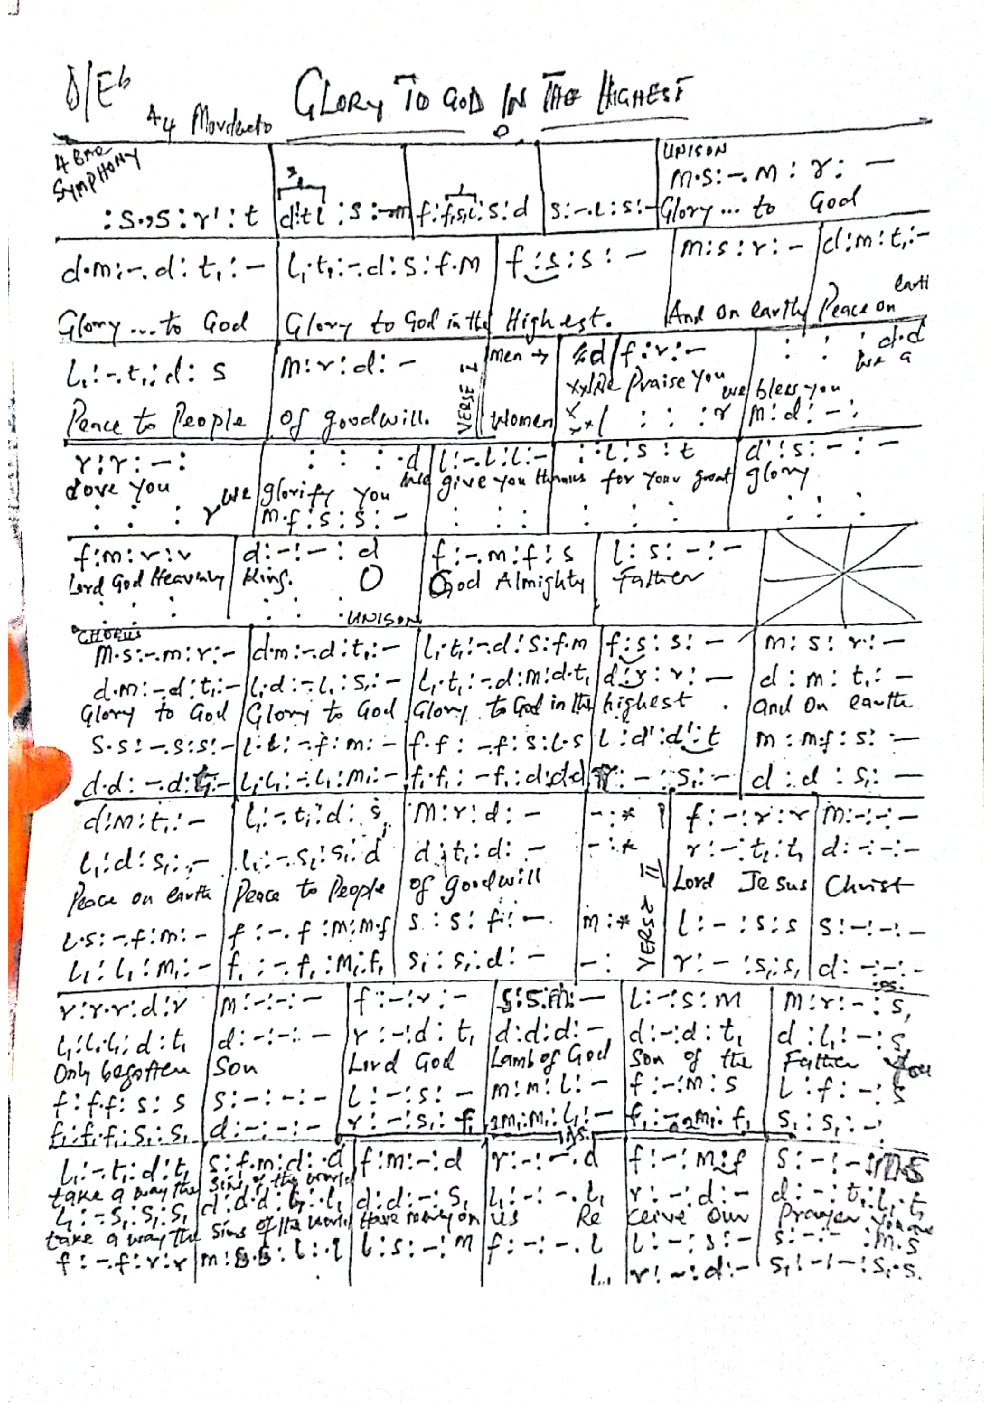 D/Eb
GLORY TO GOD IN THE HIGHEST
4/4 Moderato
4 BAR SYMPHONY
UNISON
m.s:-.m : r: -
:s.,s:r':t | d':t l :s :-.m | f:f,s,l:s:d | s:-.l:s:- | Glory... to God
d.m:-.d:t,:- | l,.t,:-.d:s:f.m | f:s:s:- | m:s:r:- | d:m:t,:-
Glory...to God | Glory to God in the | Highest. | And on earth | Peace on earth
l,:-.t,:d:s | m:r:d:- | VERSE I | men → | d | f:r:- | : : : d.d
Peace to People | of goodwill. | Women | Praise you we | bless you we a
: : : r | m:d:-:
r:r:-: | : : : .d | l:-.l:l:- | :l:s:t | d':s:-:-
dove you we | glorify you we | give you thanks | for your great | glory
: : : r | m.f:s:s:- | : : : | : : : | : : :
f:m:r:r | d:-:-:d | f:-.m:f:s | l:s:-:-
Lord God Heavenly | King. O | God Almighty | Father
: : : | : : : UNISON
CHORUS
m.s:-.m:r:- | d.m:-.d:t,:- | l,.t,:-.d:s:f.m | f:s:s:- | m:s:r:-
d.m:-.d:t,:- | l,.d:-.l,:s,:- | l,.t,:-.d:m:d.t, | d:r:r:- | d:m:t,:-
Glory to God | Glory to God | Glory to God in the | highest . | and on earth
s.s:-.s:s:- | l.l:-.f:m:- | f.f:-.f:s:l.s | l:d':d':t | m:m.f:s:-
d.d:-.d:t,:- | l,.l,:-.l,:m,:- | f,.f,:-.f,:d:d.d | r:-:s,:- | d:d:s,:-
d:m:t,:- | l,:-.t,:d:s, | m:r:d:- | -:* | f:-:r:r | m:-:-:-
l,:d:s,:- | l,:-.s,:s,:d | d:t,:d:- | -:* | VERSE II | r:-:t,:t, | d:-:-:-
Peace on earth | Peace to People | of goodwill | Lord Jesus | Christ
l.s:-.f:m:- | f:-.f:m:m.f | s:s:f:- | m:* | l:-:s:s | s:-:-:-
l,:l,:m,:- | f,:-.f,:m,:f, | s,:s,:d:- | -: | r:-:s,:s, | d:-:-:-
D.S.
r:r.r:d:r | m:-:-:- | f:-:r:- | s:s:m:- | l:-:s:m | m:r:-:s,
l,:l,.l,:d:t, | d:-:-:- | r:-:d:t, | d:d:d:- | d:-:d:t, | d:l,:-:s,
Only begotten | Son | Lord God | Lamb of God | Son of the | Father You
f:f.f:s:s | s:-:-:- | l:-:s:- | m:m:l:- | f:-:m:s | l:f:-:s
f,:f,.f,:s,:s, | d:-:-:- | r:-:s,:f, | m,:m,:l,:- | f,:-:m,:f, | s,:s,:-:
D.S.
l,:-.t,:d:t, | s:f.m:d:.d | f:m:-:d | r:-:-.d | f:-:m:f | s:-:-:m.s
take a way the | Sins of the world
l,:-.s,:s,:s, | d:d.d:t,:l, | d:d:-:s, | l,:-:-.l, | r:-:d:- | d:-:t,:l,.t,
take a way the | Sins of the world | Have mercy on | us Re | ceive our | Prayer You are
f:-.f:r:r | m:s.s:l:.l | l:s:-:m | f:-:-.l | l:-:s:- | s:-:-:m.s
l, | r:-:d:- | s,:-:-:s,.s,